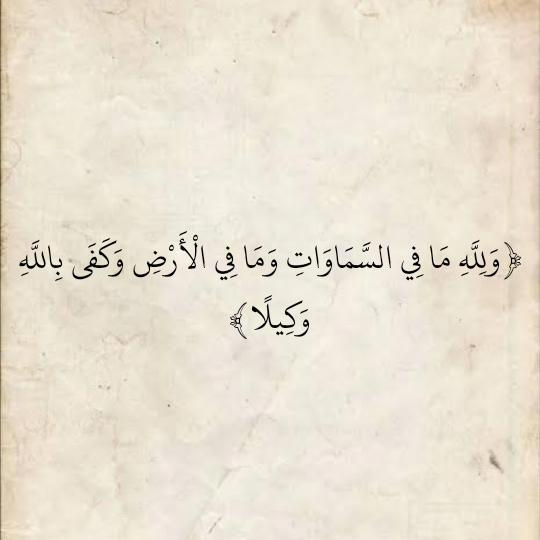 ﴿وَلِلَّهِ مَا فِي السَّمَاوَاتِ وَمَا فِي الْأَرْضِ وَكَفَى بِاللَّهِ
وَكِيلًا﴾